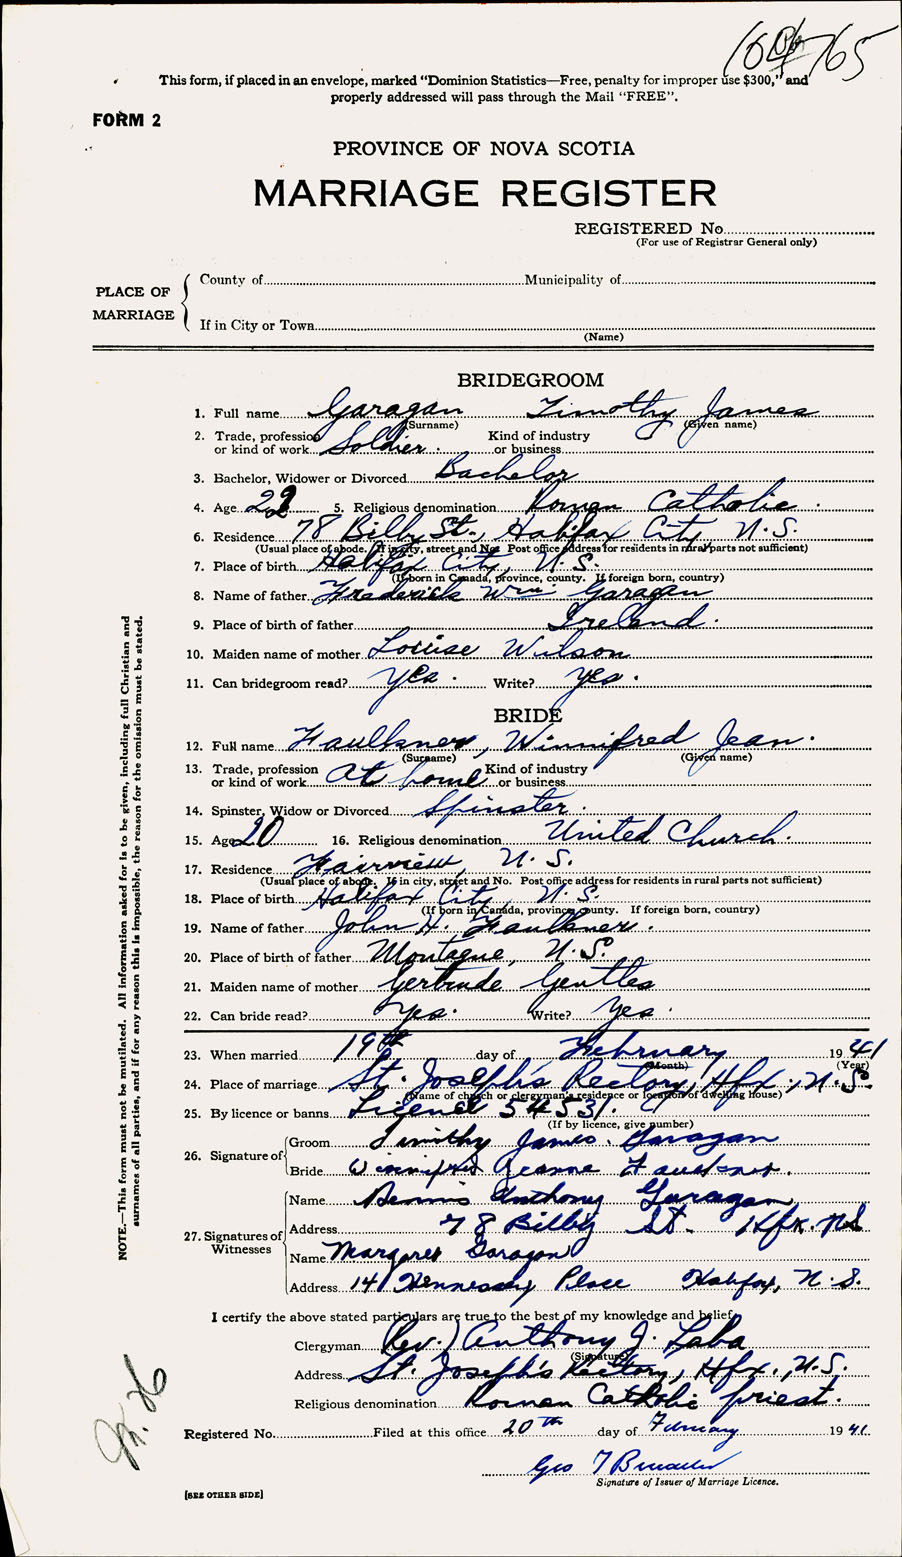 This form, if placed in an envelope, marked "Dominion Statistics—Free, penalty for improper use $300," and
properly addressed will pass through the Mail "FREE".
FORM 2
PROVINCE OF NOVA SCOTIA
MARRIAGE REGISTER
REGISTERED No.
(For use of Registrar General only)
PLACE OF MARRIAGE
County of Municipality of
If in City or Town
(Name)
BRIDEGROOM
1. Full name Garagan Timothy James
(Surname) (Given name)
2. Trade, profession or kind of work Soldier. Kind of industry or business
3. Bachelor, Widower or Divorced Bachelor
4. Age 5. Religious denomination Roman Catholic.
6. Residence 78 Bilby St., Halifax City, N.S.
(Usual place of abode. If in city, street and No. Post office address for residents in rural parts not sufficient)
7. Place of birth Halifax City, N.S.
(If born in Canada, province, county. If foreign born, country)
8. Name of father Frederick Wm. Garagan
9. Place of birth of father Ireland.
10. Maiden name of mother Louise Wilson
11. Can bridegroom read? Yes. Write? Yes.
BRIDE
12. Full name Faulkner, Winnifred Jean.
(Surname) (Given name)
13. Trade, profession or kind of work At home Kind of industry or business
14. Spinster, Widow or Divorced Spinster.
15. Age 20 16. Religious denomination United Church.
17. Residence Fairview, N.S.
(Usual place of abode. If in city, street and No. Post office address for residents in rural parts not sufficient)
18. Place of birth Halifax City, N.S.
(If born in Canada, province, county. If foreign born, country)
19. Name of father John H. Faulkner.
20. Place of birth of father Montague, N.S.
21. Maiden name of mother Gertrude Gentles
22. Can bride read? Yes. Write? Yes.
23. When married 19th day of February 1941
(Month) (Year)
24. Place of marriage St. Joseph's Rectory, Hfx., N.S.
(Name of church or clergyman's residence or location of dwelling house)
25. By licence or banns Licence 54531.
(If by licence, give number)
26. Signature of Groom Timithy James. Garagan
Bride Winnifred Jeanne Faulkner.
27. Signatures of Witnesses
Name Dennis Anthony Garagan
Address 78 Bilby St. Hfx. N.S
Name Margaret Garagan
Address 141 Hennessey Place Halifax, N.S.
I certify the above stated particulars are true to the best of my knowledge and belief,
Clergyman (Rev.) Anthony J. Laba
(Signature)
Address St. Joseph's Rectory, Hfx., N.S.
Religious denomination Roman Catholic priest.
Registered No. Filed at this office 20th day of February 1941.
Geo T
Signature of Issuer of Marriage Licence.
[SEE OTHER SIDE]
NOTE.—This form must not be mutilated. All information asked for is to be given, including full Christian and
surnames of all parties, and if for any reason this is impossible, the reason for the omission must be stated.